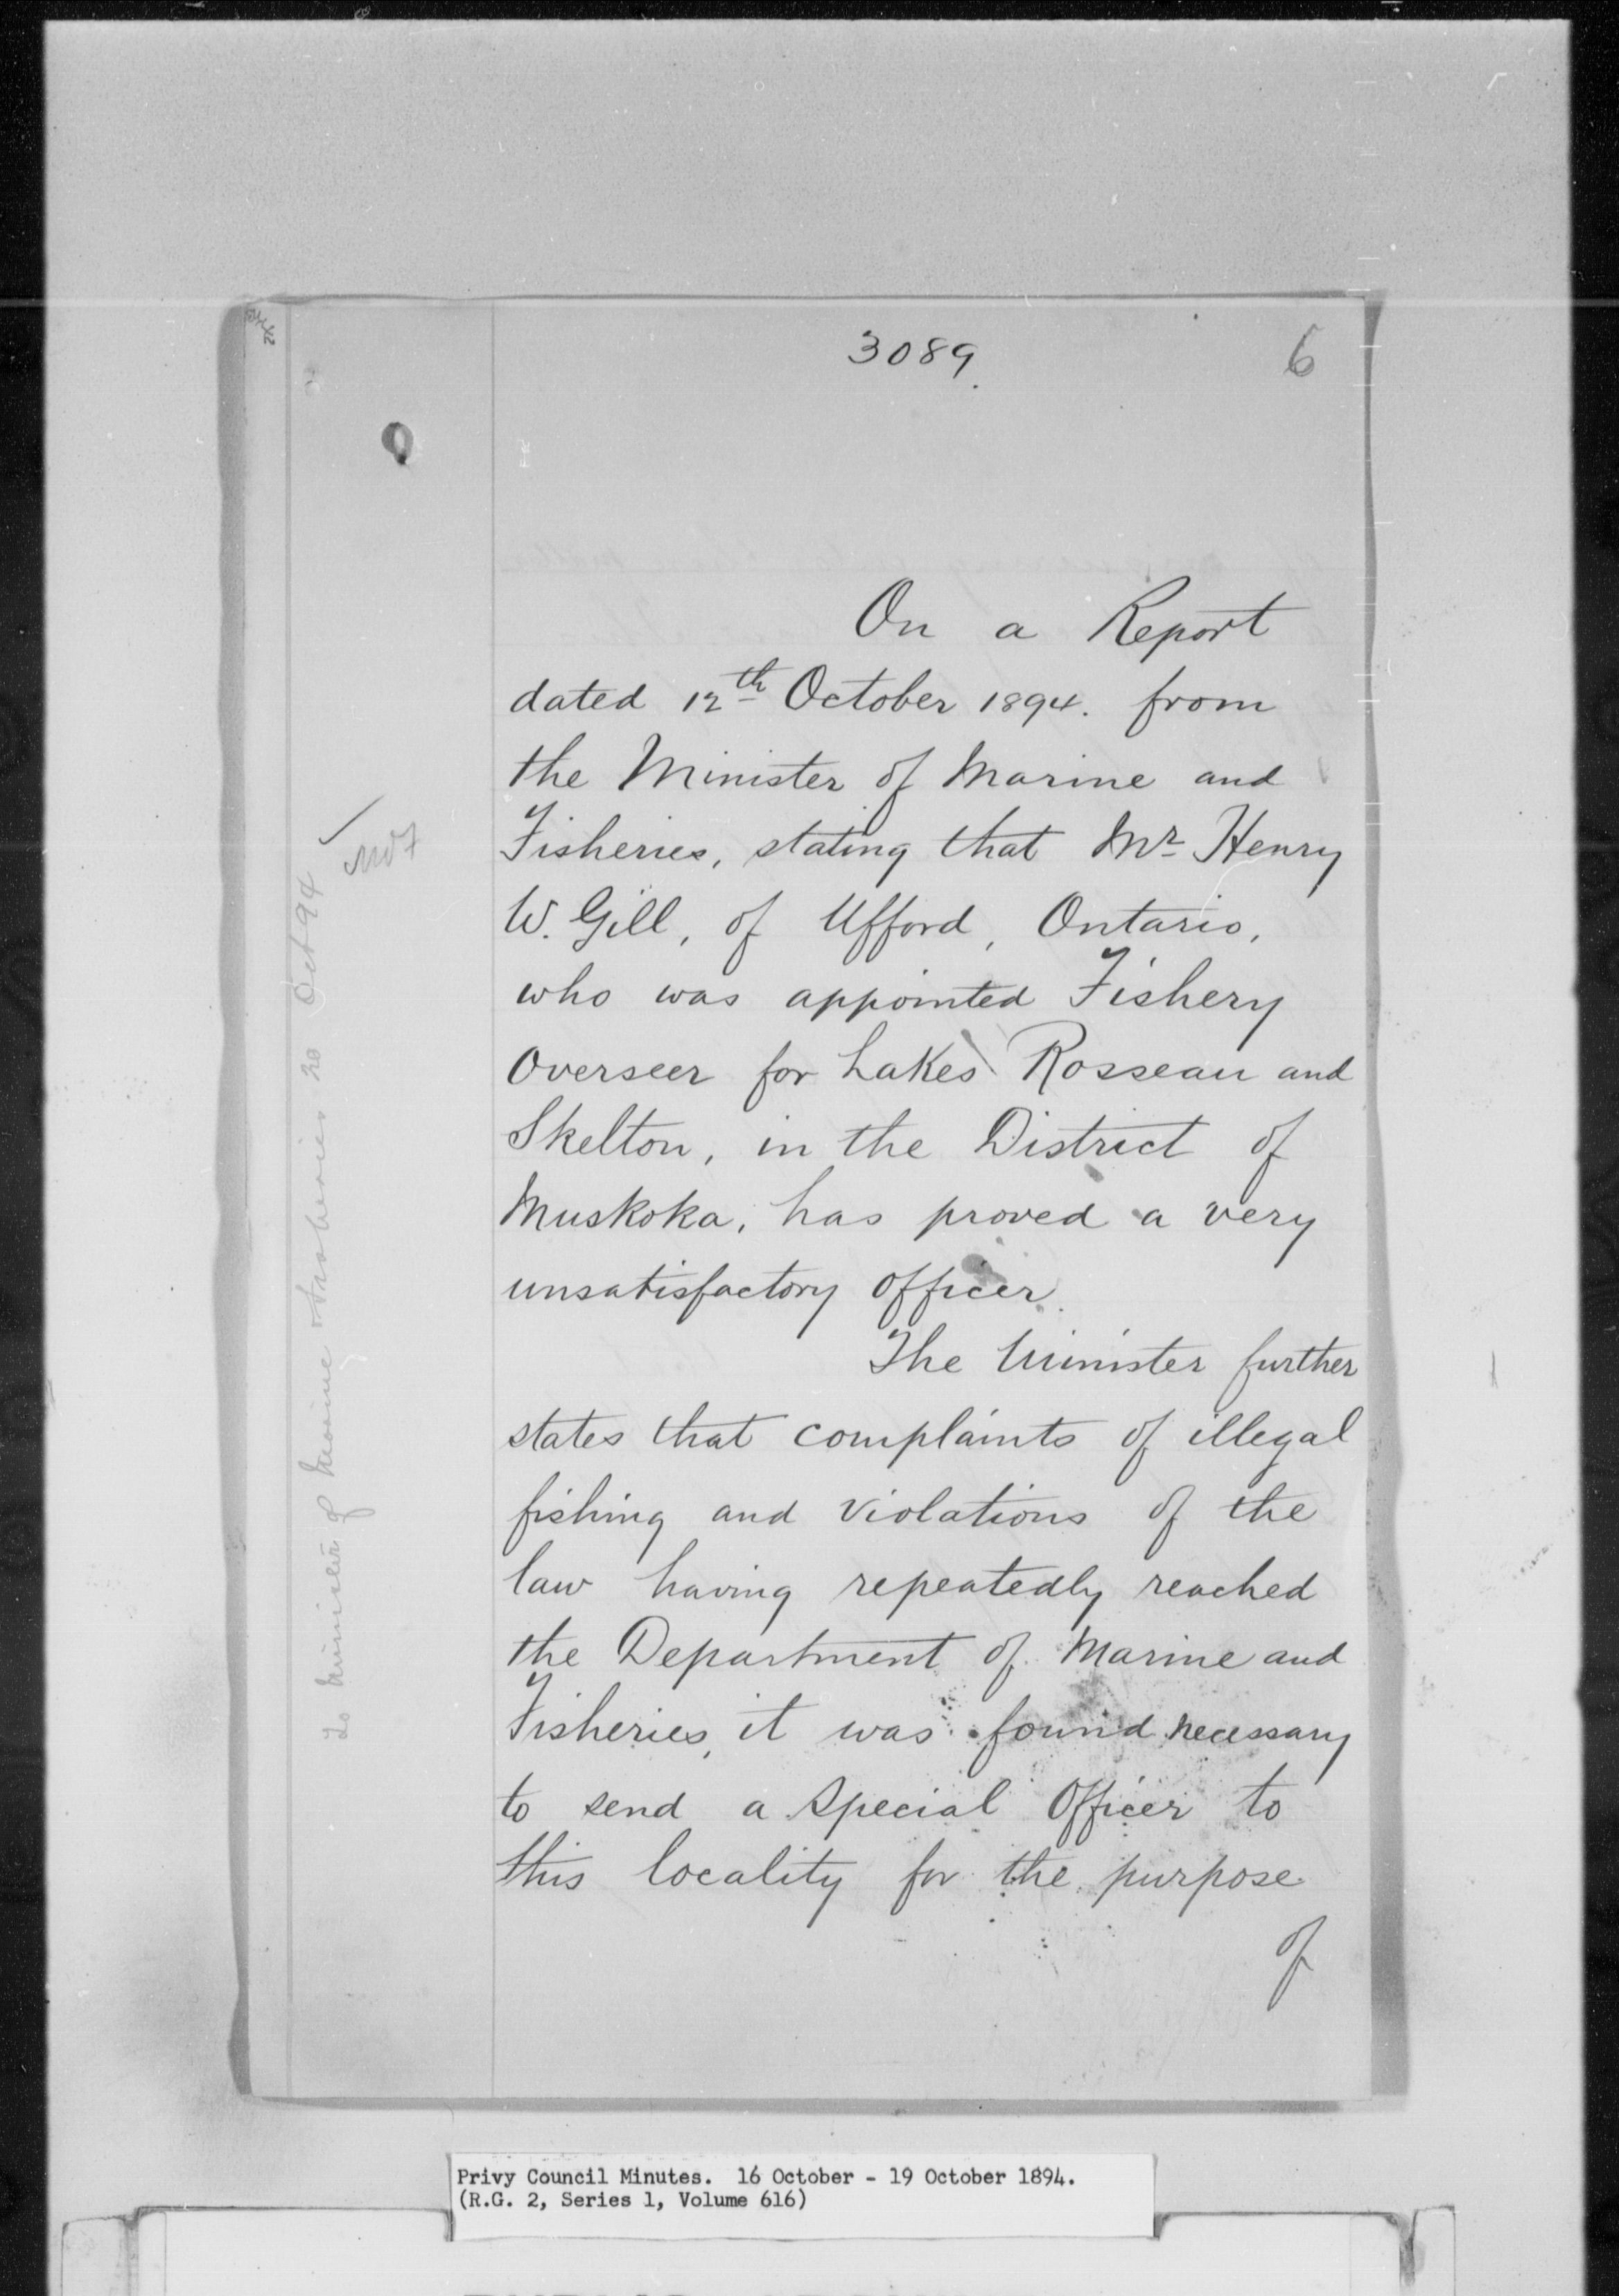 3089
6
On a Report
dated 12th October 1894. from
the Minister of Marine and
Fisheries, stating that Mr Henry
W. Gill, of Ufford, Ontario,
who was appointed Fishery
Overseer for Lakes Rosseau and
Skelton, in the District of
Muskoka, has proved a very
unsatisfactory officer.
The Minister further
states that complaints of illegal
fishing and violations of the
law having repeatedly reached
the Department of Marine and
Fisheries, it was found necessary
to send a special Officer to
this locality for the purpose
of
To Minister of Marine & Fisheries 20 Oct 94
Privy Council Minutes. 16 October - 19 October 1894.
(R.G. 2, Series 1, Volume 616)